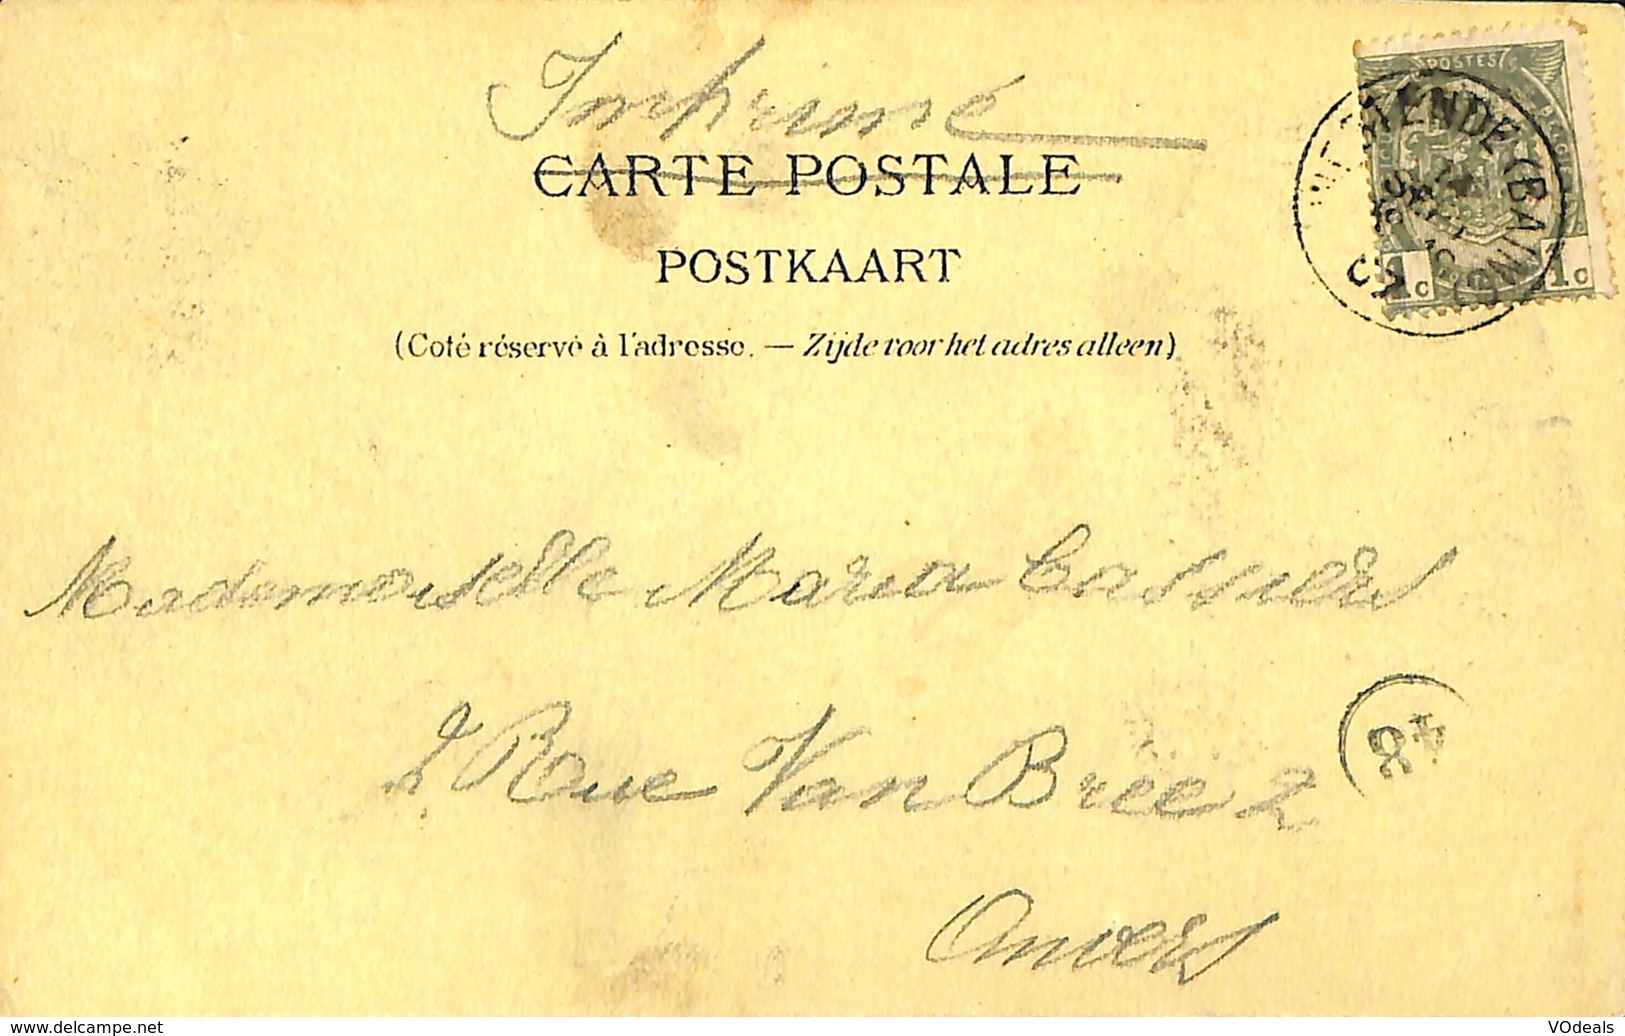 Imprimé
CARTE POSTALE
POSTKAART
(Coté réservé à l'adresse. — Zijde voor het adres alleen)
POSTES
1c 1c
WESTENDE (BAINS)
Mademoiselle Maria Cassiers
2 Rue Van Brée 2
84
Anvers
www.delcampe.net
VOdeals